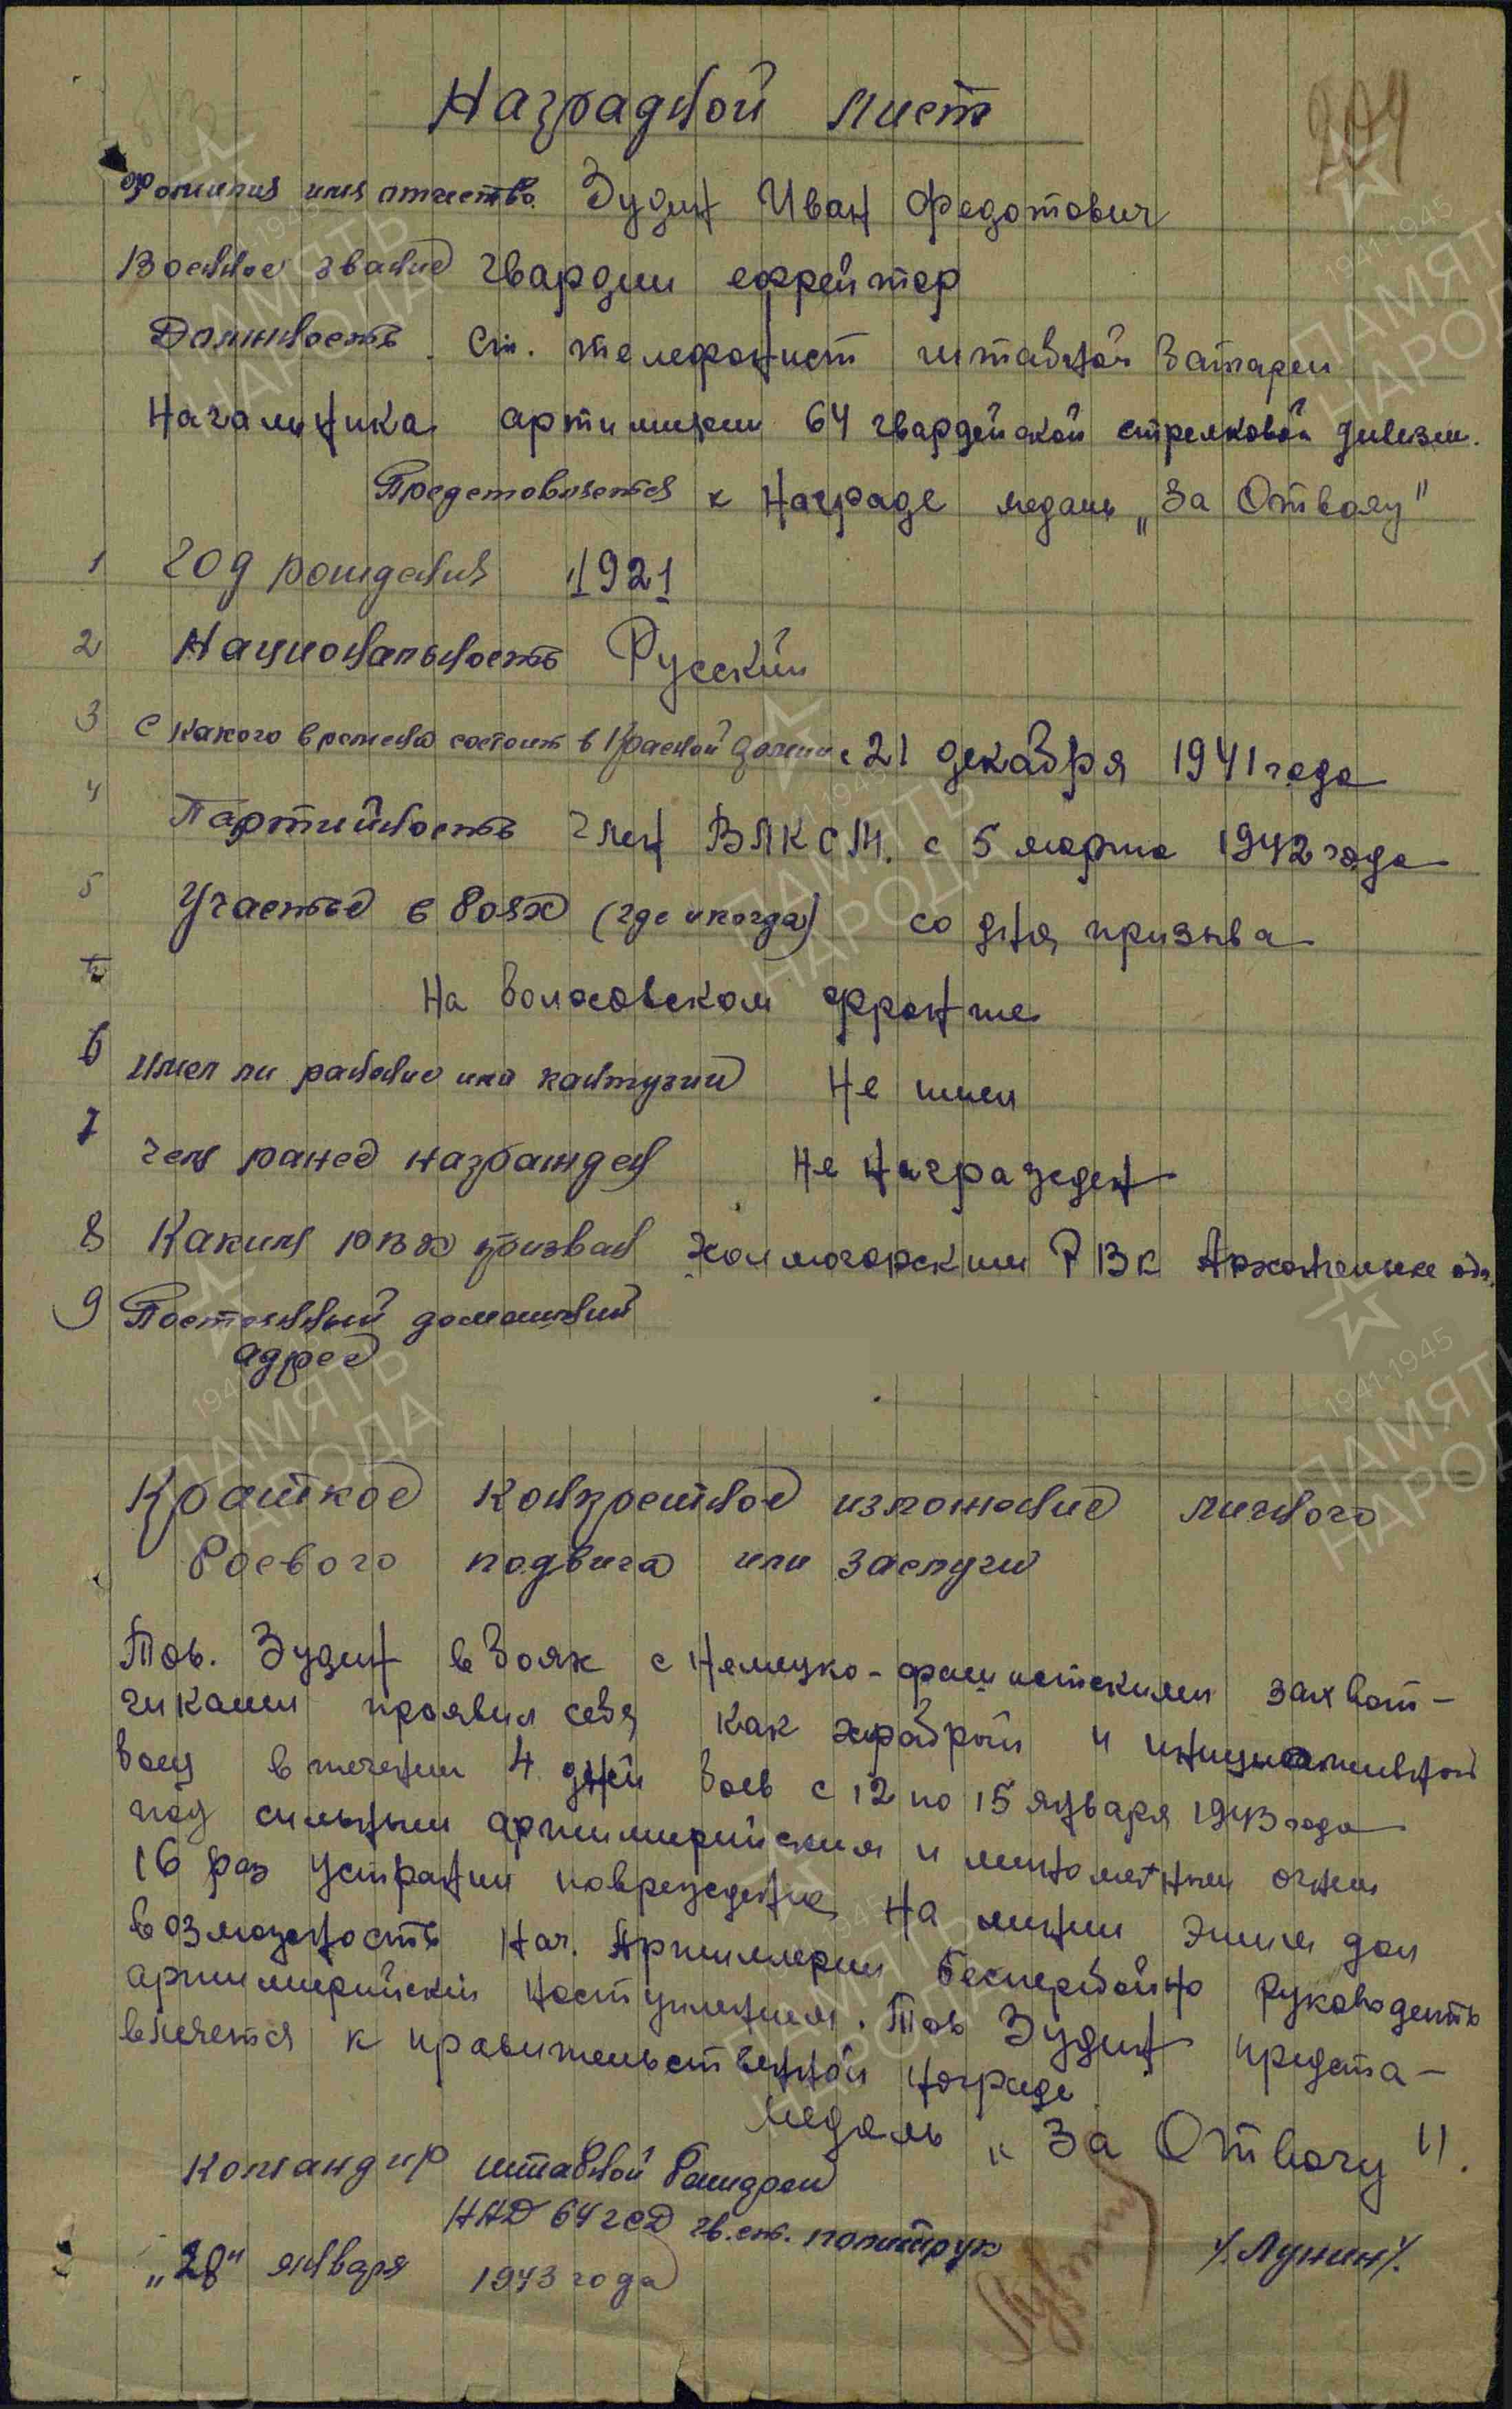 Наградной лист
204
Фомилия имя отчество Зудин Иван Федотович
Военное звание гвардии ефрейтор
Должность ст. телефонист штабной батареи
Начальника артилерии 64 гвардейской стрелковой дивизии.
Предстовляется к Награде медаль „За Отвагу"
1 Год рождения 1921
2 Национальность Русский
3 С какого времени состоит в Красной Армии с 21 декабря 1941 года
4 Партийность Член ВЛКСМ. с 5 марта 1942 года
5 Участие в боях (где и когда) со дня призыва
На Волховском фронте
6 имел ли ранение или контузии Не имел
7 Чем ранее награжден Не награжден
8 Каким РВК призван Холмогорским РВК Архангельск обл.
9 Постоянный домашний
адрес
Краткое конкретное изложение личного
боевого подвига или заслуги
Тов. Зудин в боях с Немецко-фашистскими захват-
чиками проявил себя как храбрый и инициативный
воец в течении 4 дней боев с 12 по 15 января 1943 года
под сильным артиллерийским и минометным огнем
16 раз устранил повреждения на линии этим дал
возможность Нач. Артиллерии бесперебойно руководить
артиллерийский наступлением. Тов Зудин предста-
вляется к правительственной награде
медаль „За Отвагу".
Командир штабной батареи
НАД 64 гсд гв. ст. политрук /Лунин/.
„28" января 1943 года
ПАМЯТЬ НАРОДА
1941-1945